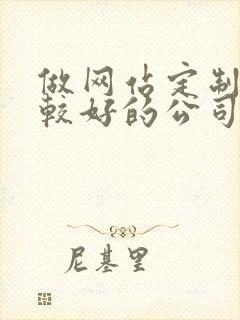 做网估定制
较好的公司
尼基里